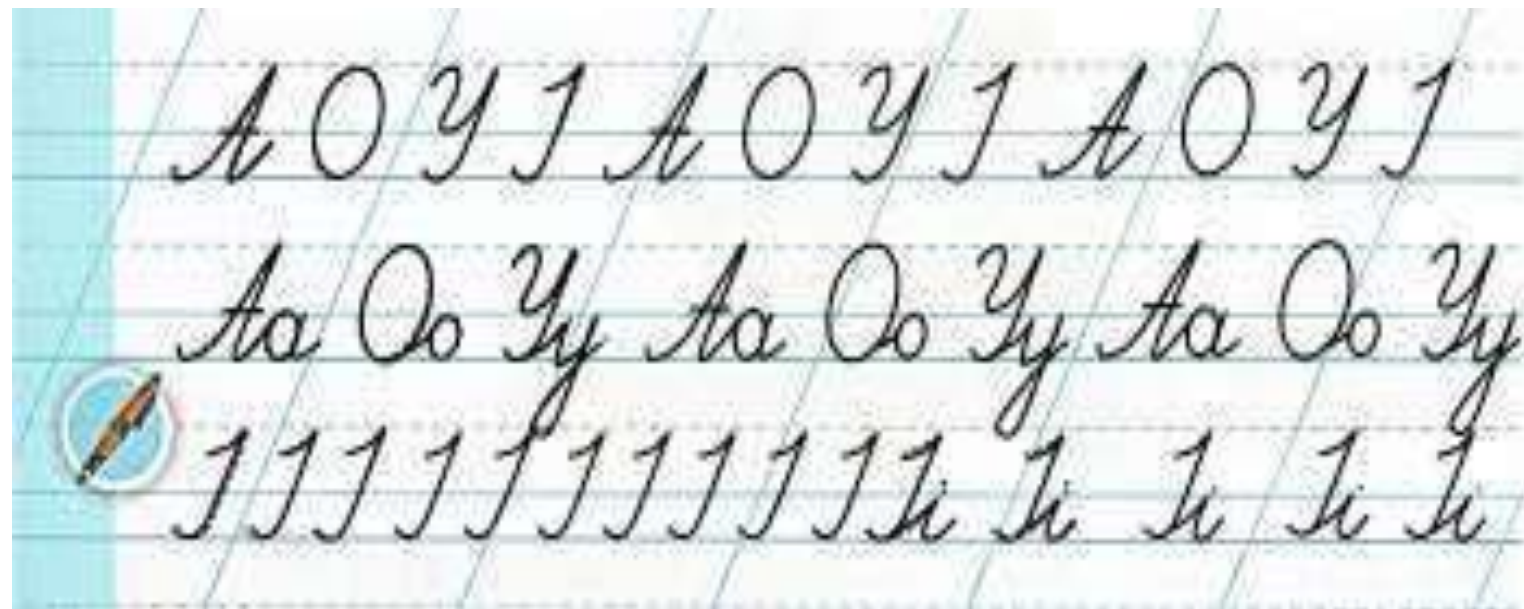 А О У І А О У І А О У І
Аа Оо Уу Аа Оо Уу Аа Оо Уу
І І І І І І І І І І Іі Іі Іі Іі Іі